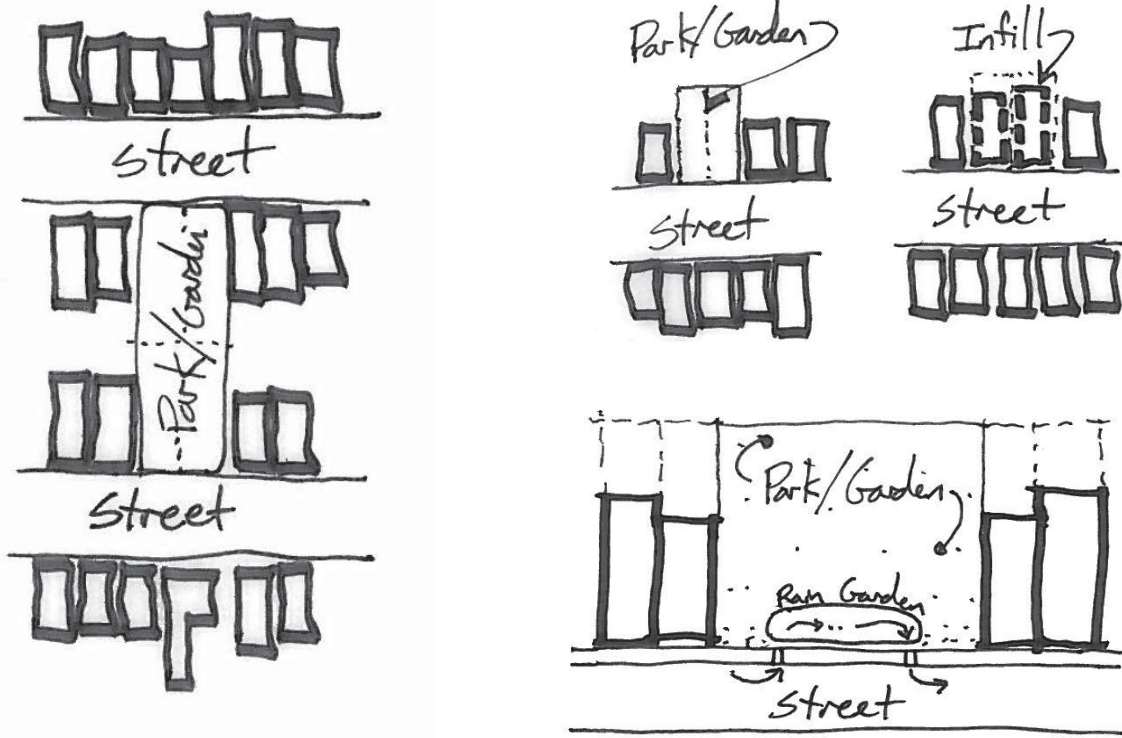 Street
Park/Garden
Street
Park/Garden
Infill
Street
Street
Park/Garden
Rain Garden
Street